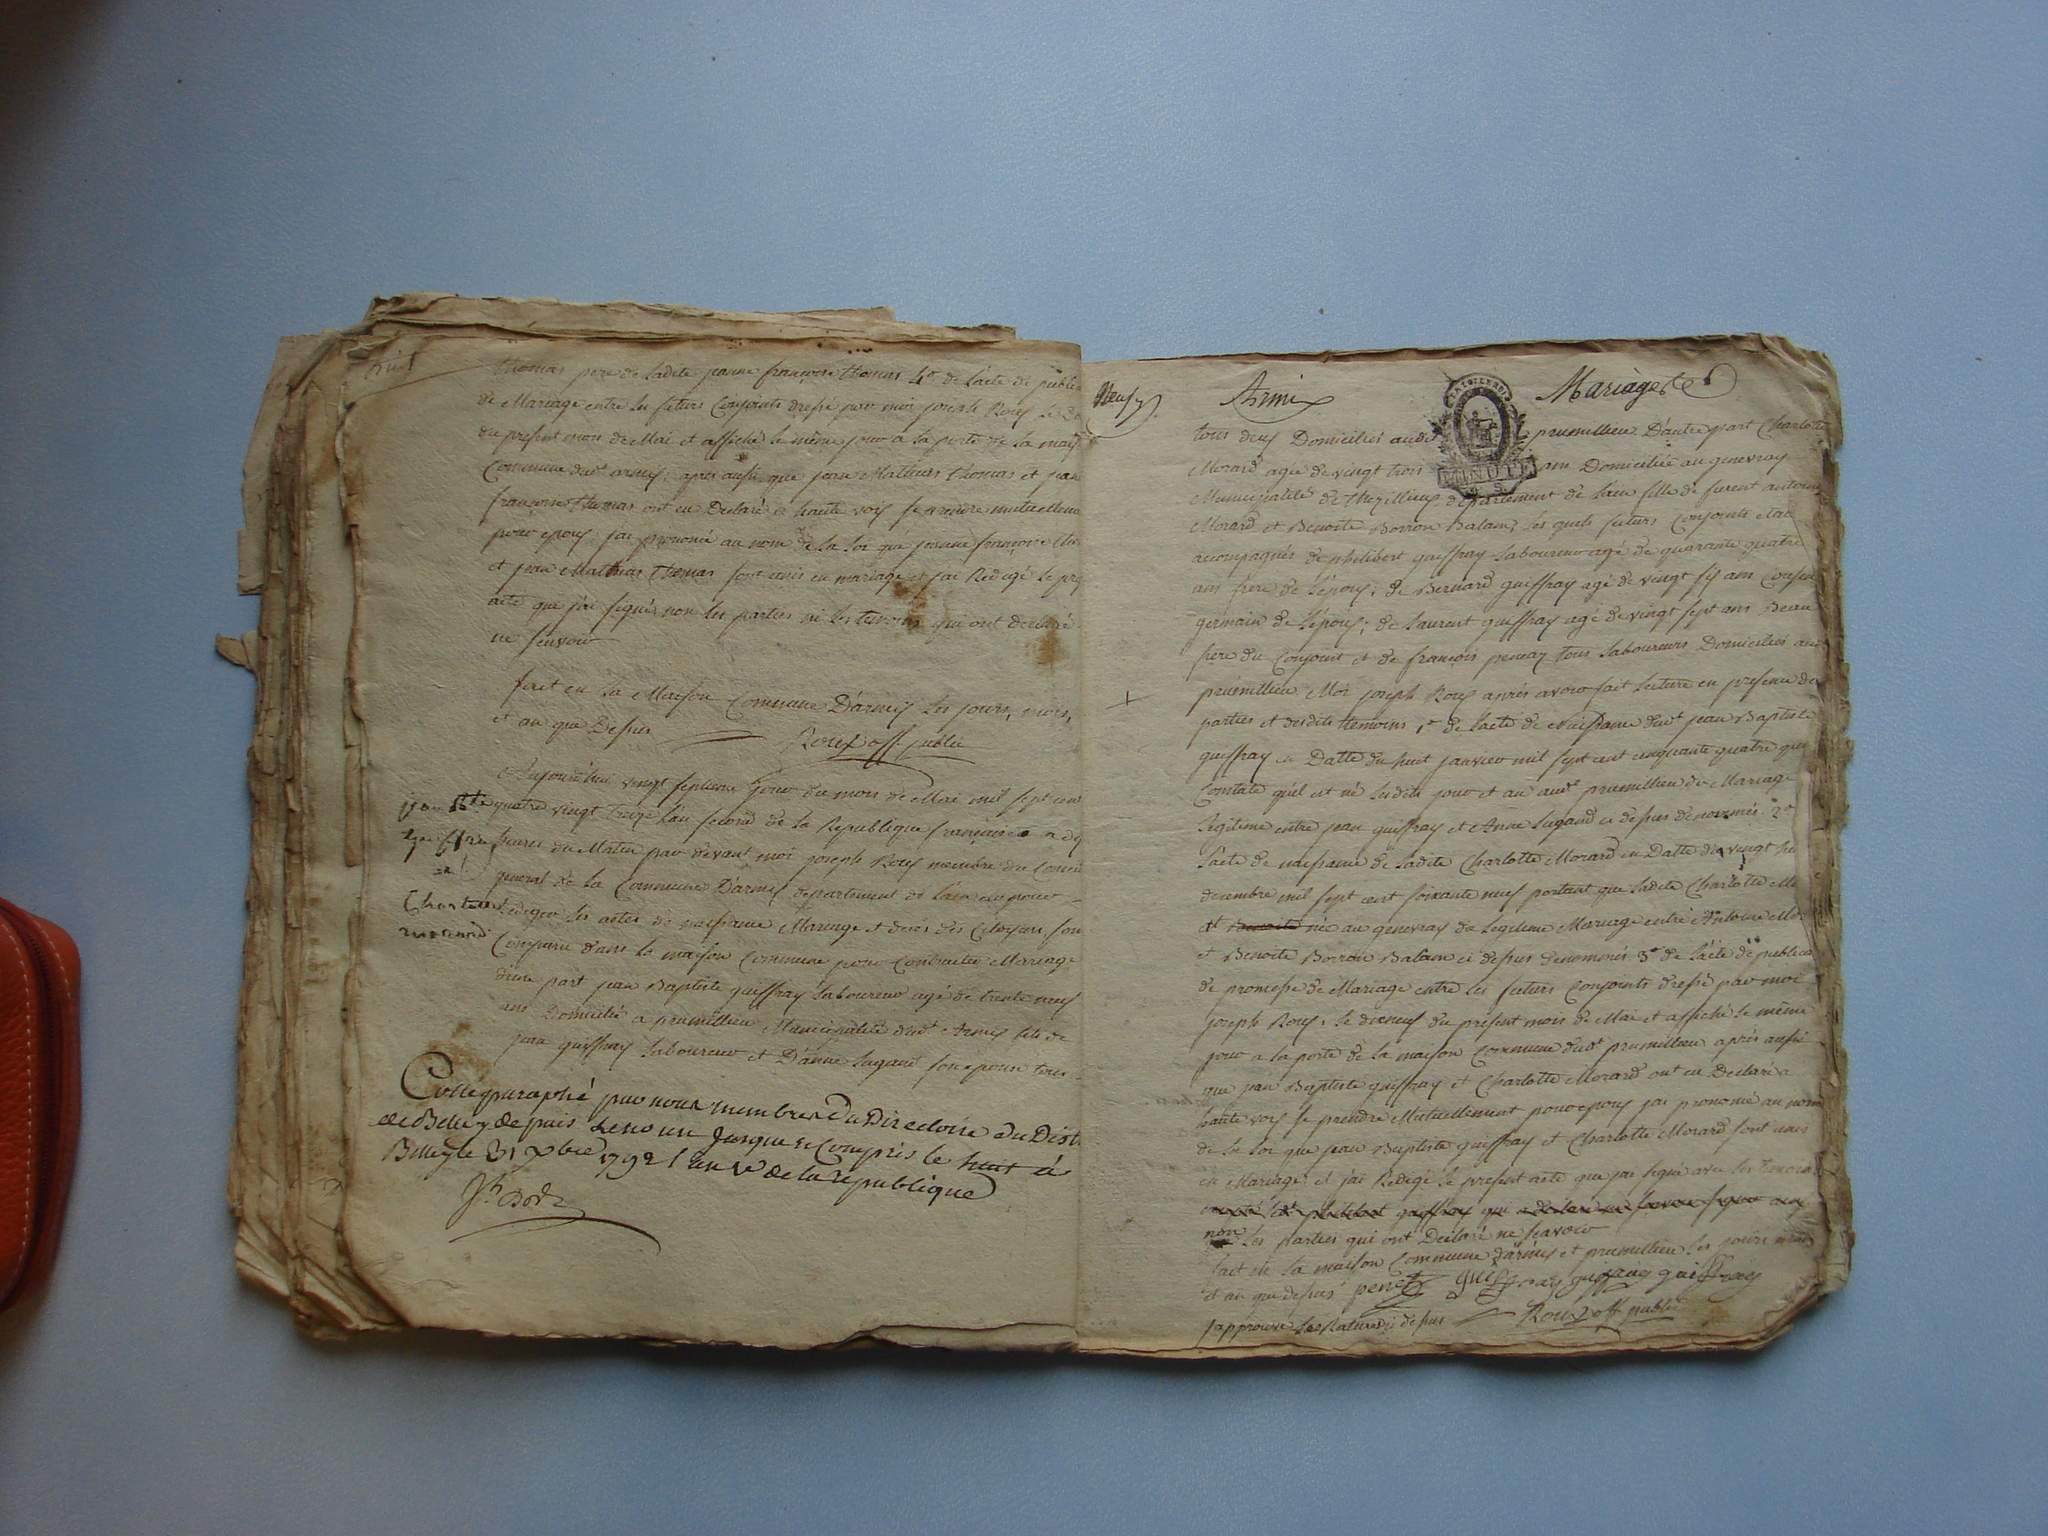 huit
thomas pere de ladite jeanne françoise thomas 4º de l'acte de public
de Mariage entre les futurs Conjoints dressé par moi joseph Roux le
du present mois de Mai et affiché le même jour a la porte de la mais
Commune dudt armix; apres aussi que jean Mathieu thomas et jean
françoise thomas ont eu Declaré a haute voix se prendre mutuelleme
pour epoux j'ai prononcé au nom de la Loi que jeanne françoise tho
et jean Mathieu thomas sont unis en mariage et j'ai Redigé le pre
acte que j'ai signé, non les parties ni les temoins qui ont declaré
ne sçavoir
fait en la Maison Commune D'armix les jours, mois,
et an que Dessus Roux off. public
Aujourd'hui vingt septieme jour du mois de Mai mil sept cent
jean Bte
quatre vingt treize L'an second de la Republique française a dix
guiffray
heures du Matin par devant moi joseph Roux membre du Conseil
general de la Commune D'armix departement de L'ain elu pour
Charlotte
Rediger les actes de naissance Mariage et decès des Citoyens, sont
morard
Comparu dans la maison Commune pour Contracter Mariage
d'une part jean Baptiste guiffray Laboureur agé de trente neuf
ans Domicilié a prumillieu Municipalité dudt Armix fils de
jean guiffray Laboureur et D'anne Lugand son epouse tous
Cotté paraphé par nous membres du Directoire du Distr
de Belley depuis Le no un jusque et Compris le huit à
Belley le 31 xbre 1792 l'an 1er de la republique
Neuf
Armix
Mariages
MINUTE
tous deux Domiciliés audit prumillieu D'autre part Charlotte
Morard agée de vingt trois ans Domiciliée au genevray
Municipalité de thezillieux departement de L'ain fille de furent antoine
Morard et Benoite Borron Balain; Lesquels futurs Conjoints etai
accompagnés de philibert guiffray Laboureur agé de quarante quatre
ans frere de L'epoux; de Bernard guiffray agé de vingt six ans Cousin
germain de L'epoux; de Laurent guiffray agé de vingt sept ans Beau
frere du Conjoint et de françois penet tous Laboureurs Domiciliés aud
prumillieu Moi joseph Roux après avoir fait Lecture en presence des
parties et desdits temoins 1º de L'acte de Naissance dudt jean Baptiste
guiffray en Datte du huit janvier mil sept cent cinquante quatre qui
Constate qu'il est né Lesdits jour et an audt prumillieu du Mariage
Legitime entre jean guiffray et Anne Lugand ci dessus denommés 2º
L'acte de naissance de Ladite Charlotte Morard en Datte du vingt
decembre mil sept cent soixante neuf portant que Ladite Charlotte Mo
est née au genevray du Legitime Mariage entre Antoine Mo
et Benoite Borron Balain ci dessus denommés 3º de L'acte de publicat
de promesse de Mariage entre les futurs Conjoints dressé par moi
joseph Roux, le dixneuf du present mois de Mai et affiché le même
jour a la porte de la maison Commune dudt prumillieu après aussi
que jean Baptiste guiffray et Charlotte Morard ont eu Declaré a
haute voix se prendre Mutuellement pour epoux j'ai prononcé au nom
de la Loi que jean Baptiste guiffray et Charlotte Morard sont unis
en Mariage et j'ai Redigé le present acte que j'ai signé avec les temoins
philibert guiffray qui a declaré ne sçavoir signer
non les parties qui ont Declaré ne sçavoir
fait en la maison Commune d'armix et prumillieu les jours mois
et an que dessus penet guiffray guiffray guiffray
j'approuve Les Ratures ci dessus Roux off public